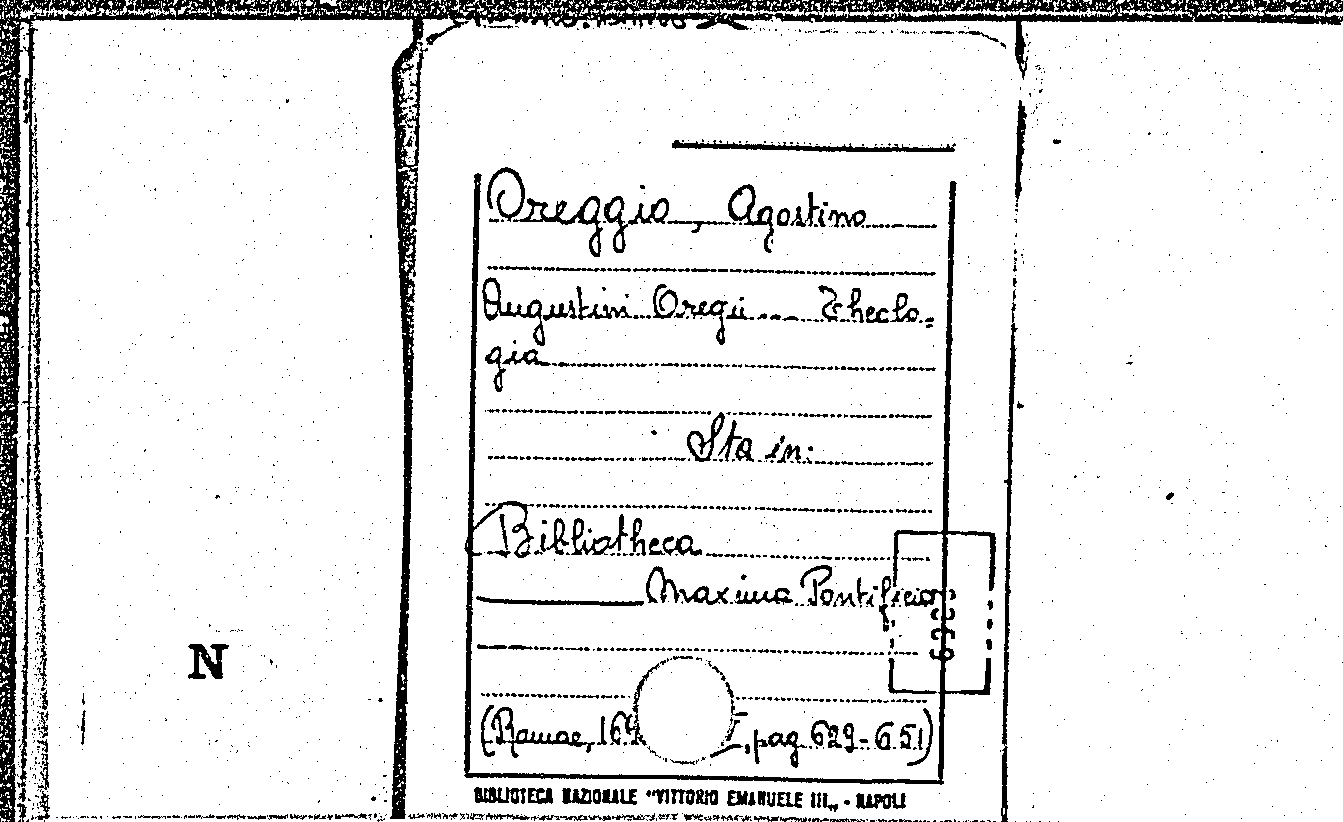 Oreggio, Agostino
Augustini Oregii ... Theolo-
gia
Sta in:
Bibliotheca
Maxima Pontificia
N
(Romae, pag 629-651)
BIBLIOTECA NAZIONALE "VITTORIO EMANUELE III„ - NAPOLI